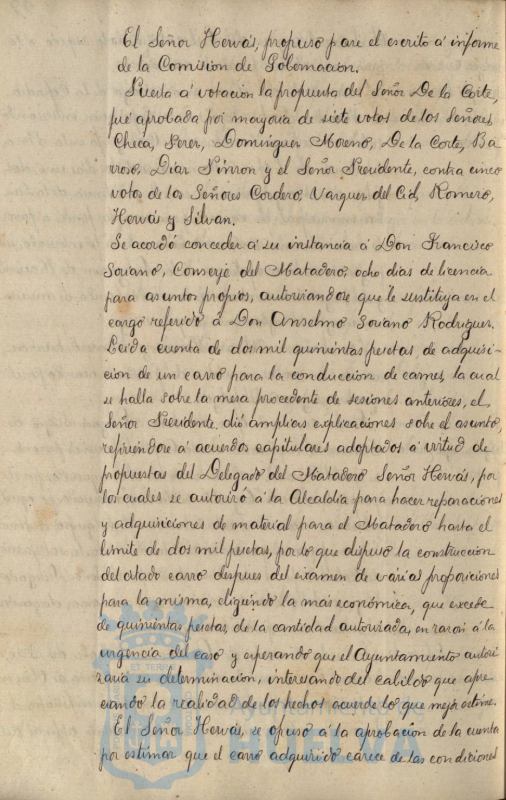 El Señor Hervás, propuso pase el escrito á informe
de la Comision de Gobernacion.
Puesta á votacion la propuesta del Señor De la Corte,
fué aprobada por mayoria de siete votos de los Señores
Checa, Perez, Dominguez Moreno, De la Corte, Ba
rroso, Diaz Pinzon y el Señor Presidente, contra cinco
votos de los Señores Cordero, Vazquez del Cid, Romero,
Hervás y Silvan.
Se acordó conceder á su instancia á Don Francisco
Soriano, Conserje del Matadero, ocho dias de licencia
para asuntos propios, autorizandose que le sustituya en el
cargo referido á Don Anselmo Soriano Rodriguez.
Leida cuenta de dos mil quinientas pesetas, de adquisi-
cion de un carro para la conduccion de carnes, la cual
se halla sobre la mesa procedente de sesiones anteriores, el
Señor Presidente dió amplias explicaciones sobre el asunto,
refiriendose á acuerdos capitulares adoptados á virtud de
propuestas del Delegado del Matadero Señor Hervás, por
los cuales se autorizó á la Alcaldia para hacer reparaciones
y adquisiciones de material para el Matadero hasta el
limite de dos mil pesetas, por lo que dispuso la construccion
del citado carro despues del examen de varias proposiciones
para la misma, eligiendo la más económica, que excede
de quinientas pesetas, de la cantidad autorizada, en razon á la
urgencia del caso y esperando que el Ayuntamiento autori
zaria su determinacion, interesando del cabildo que apre
ciando la realidad de los hechos acuerde lo que mejor estime.
El Señor Hervás, se opuso á la aprobacion de la cuenta
por estimar que el carro adquirido carece de las condiciones
Ayuntamiento de
HUELVA